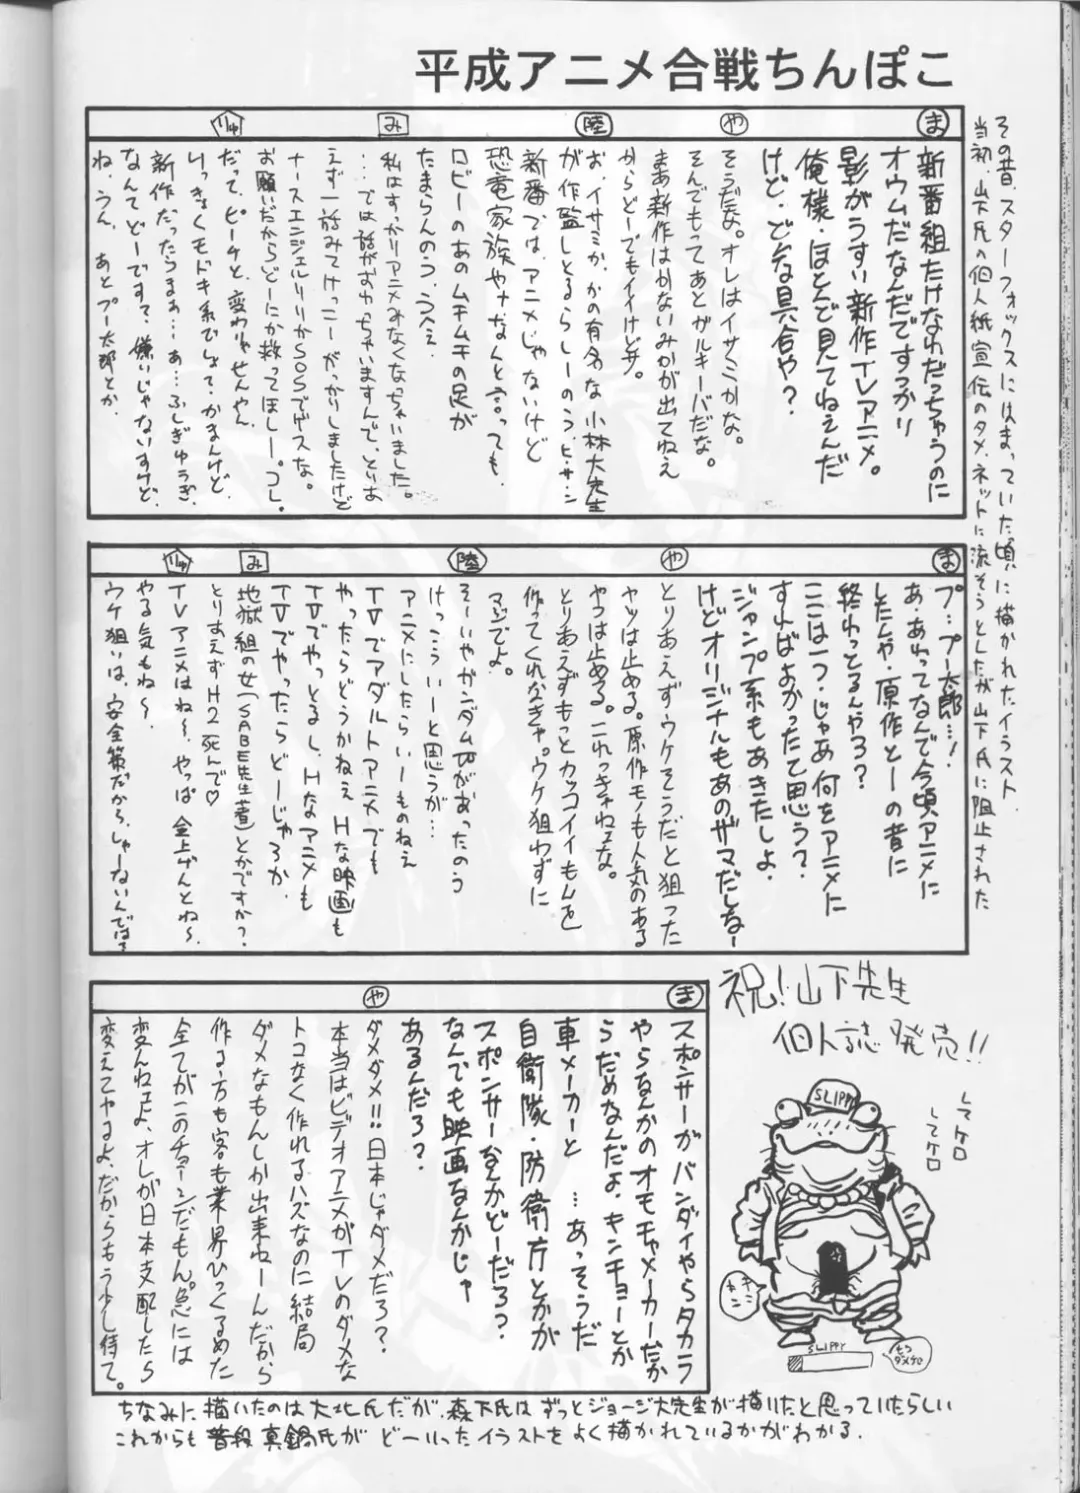 平成アニメ合戦ちんぽこ
その昔、スターフォックスにはまっていた頃に描かれたイラスト
当初、山下氏の個人紙宣伝のタメ、ネットに流そうとしたが山下氏に阻止された
ま
新番組たけなわだっちゅうのに
オウムだなんだですっかり
影がうすい新作TVアニメ。
俺様・ほとんど見てねえんだ
けど・どんな具合や?
や
そうだな。オレはイサミかな。
そんでもってあとガルキーバだな。
まあ新作はかないみかが出てねえ
からどーでもイイけどサ。
陸
お、イサミか、かの有名な小林大先生
が作監しとるらしーのう、ヒ・サ・シ
新番では、アニメじゃないけど
恐竜家族や、なんと言っても、
ロビーのあのムチムチの足が
たまらんのう、うへえ.
み
私はすっかりアニメみなくなっちゃいました。
…では話がおわっちゃいますんで、とりあ
えず一話みてけっこーがっかりしましたけど
ナースエンジェルりりかSOSでゲスな。
お願いだからどーにか救ってほしー。コレ。
りゅ
だって、ピーチと、変わりゃせんやん.
りっきょくモドキ系でしょ?かまんけど.
新作だったらまぁ…あ…ふしぎゆうぎ.
なんてどーですて、嫌いじゃないすけど.
ね、うん、あとプー太郎とか.
ま
プ…プー太郎…!
あ・あれってなんで今頃アニメに
したんや・原作とーの昔に
終わっとるんやろ?
ここは一つ・じゃあ何をアニメに
すればよかったて思う?
ジャンプ系もあきたしよ.
けどオリジナルもあのザマだしなー
や
とりあえずウケそうだと狙った
ヤツは止める。原作モノも人気のある
やつは止める。これっきゃねェな。
とりあえずもっとカッコイイもんを
作ってくれなきゃ。ウケ狙わずに
マジでよ。
陸
そーいやガンダムWがあったのう
けっこういーと思うが…
アニメにしたらいーものねえ
TVでアダルトアニメでも
やったらどうかねえHな映画も
TVでやっとるし、Hなアニメも
TVでやったらどーじゃろか.
み
地獄組の女(SABE先生著)とかですか?
とりあえずH2死んで♡
りゅ
TVアニメはね〜、やっぱ全上げんとね〜、
やる気もね〜
ウケ狙いは、安全策だから、しゃーないんでは?
ま
スポンサーがバンダイやらタカラ
やらなんかのオモチャメーカーだか
らだめなんだよ.キンチョーとか
車メーカーと…あっそうだ
自衛隊・防衛庁とかが
スポンサーなんかどーだろ?
なんでも映画なんかじゃ
あるんだろ?
や
ダメダメ!!日本じゃダメだろ?
本当はビデオアニメがTVのダメな
トコなく作れるハズなのに結局
ダメなもんしか出来ねーんだから
作る方も客も業界ひっくるめた
全てがこのチョーシだもん。急には
変んねェよ、オレが日本支配したら
変えてやるよ、だからもう少し待て。
祝!山下先生
個人誌発売!!
SLIPPY
してケロ
してケロ
SLIPPY
ちなみに描いたのは大北氏だが、森下氏はずっとジョージ大先生が描いたと思っていたらしい
これからも普段真鍋氏がどーいったイラストをよく描かれているかがわかる.